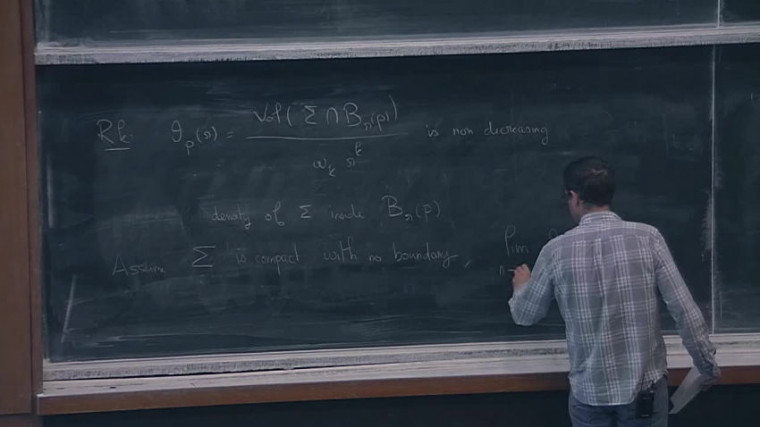 Rk: θ_p(r) = Vol(Σ ∩ B_r(p)) / ω_k r^k is non decreasing
density of Σ inside B_r(p)
Assume Σ is compact with no boundary, lim